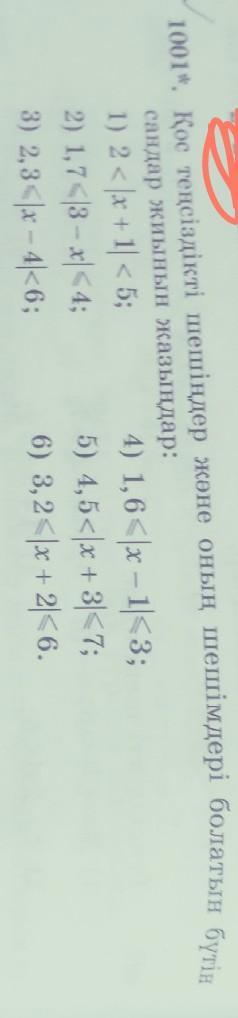 1001*. Қос теңсіздікті шешіңдер және оның шешімдері болатын бүтін
сандар жиынын жазыңдар:
1) 2 < |x + 1| < 5; 4) 1,6 ⩽ |x − 1| ⩽ 3;
2) 1,7 ⩽ |3 − x| ⩽ 4; 5) 4,5 < |x + 3| ⩽ 7;
3) 2,3 ⩽ |x − 4| < 6; 6) 3,2 ⩽ |x + 2| ⩽ 6.